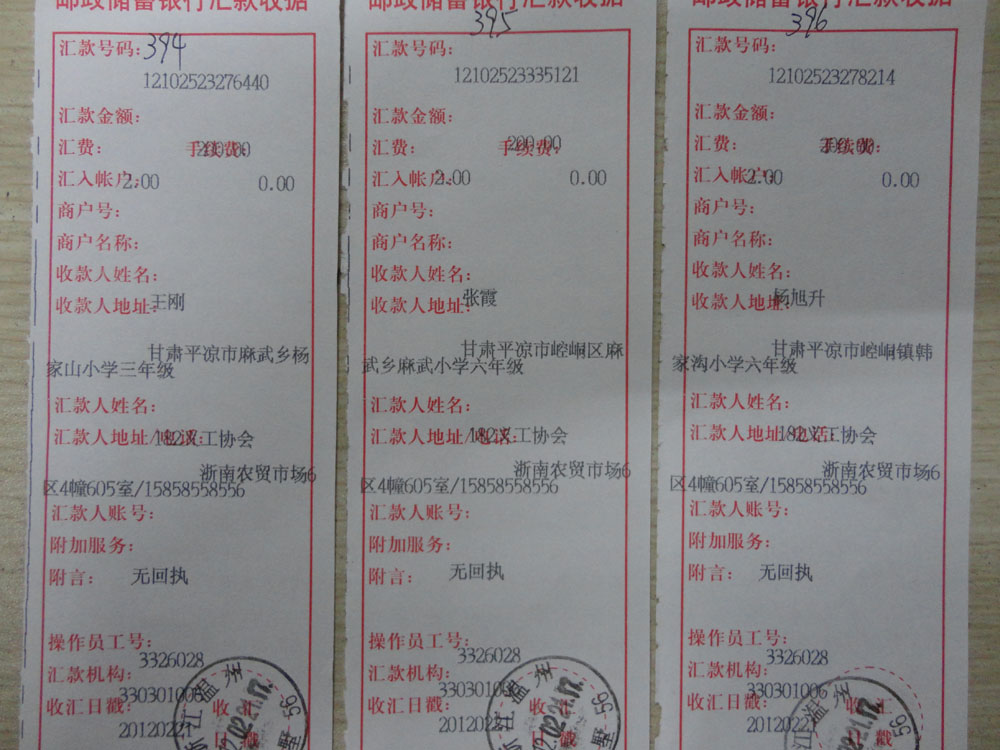 邮政储蓄银行汇款收据
394
汇款号码:
12102523276440
汇款金额:
汇费: 手续费: 200.00
汇入帐户: 2.00 0.00
商户号:
商户名称:
收款人姓名:
收款人地址: 王刚
甘肃平凉市麻武乡杨
家山小学三年级
汇款人姓名:
汇款人地址/电话: 182义工协会
浙南农贸市场6
区4幢605室/15858558556
汇款人账号:
附加服务:
附言: 无回执
操作员工号:
3326028
汇款机构:
330301006
收汇日戳:
20120221
浙江温州
收汇
日戳
邮政储蓄银行汇款收据
395
汇款号码:
12102523335121
汇款金额:
汇费: 手续费: 200.00
汇入帐户: 2.00 0.00
商户号:
商户名称:
收款人姓名:
收款人地址: 张霞
甘肃平凉市崆峒区麻
武乡麻武小学六年级
汇款人姓名:
汇款人地址/电话: 182义工协会
浙南农贸市场6
区4幢605室/15858558556
汇款人账号:
附加服务:
附言: 无回执
操作员工号:
3326028
汇款机构:
330301006
收汇日戳:
20120221
浙江温州
收汇
日戳
邮政储蓄银行汇款收据
396
汇款号码:
12102523278214
汇款金额:
汇费: 手续费: 200.00
汇入帐户: 2.00 0.00
商户号:
商户名称:
收款人姓名:
收款人地址: 杨旭升
甘肃平凉市崆峒镇韩
家沟小学六年级
汇款人姓名:
汇款人地址/电话: 182义工协会
浙南农贸市场6
区4幢605室/15858558556
汇款人账号:
附加服务:
附言: 无回执
操作员工号:
3326028
汇款机构:
330301006
收汇日戳:
20120221
浙江温州
收汇
日戳